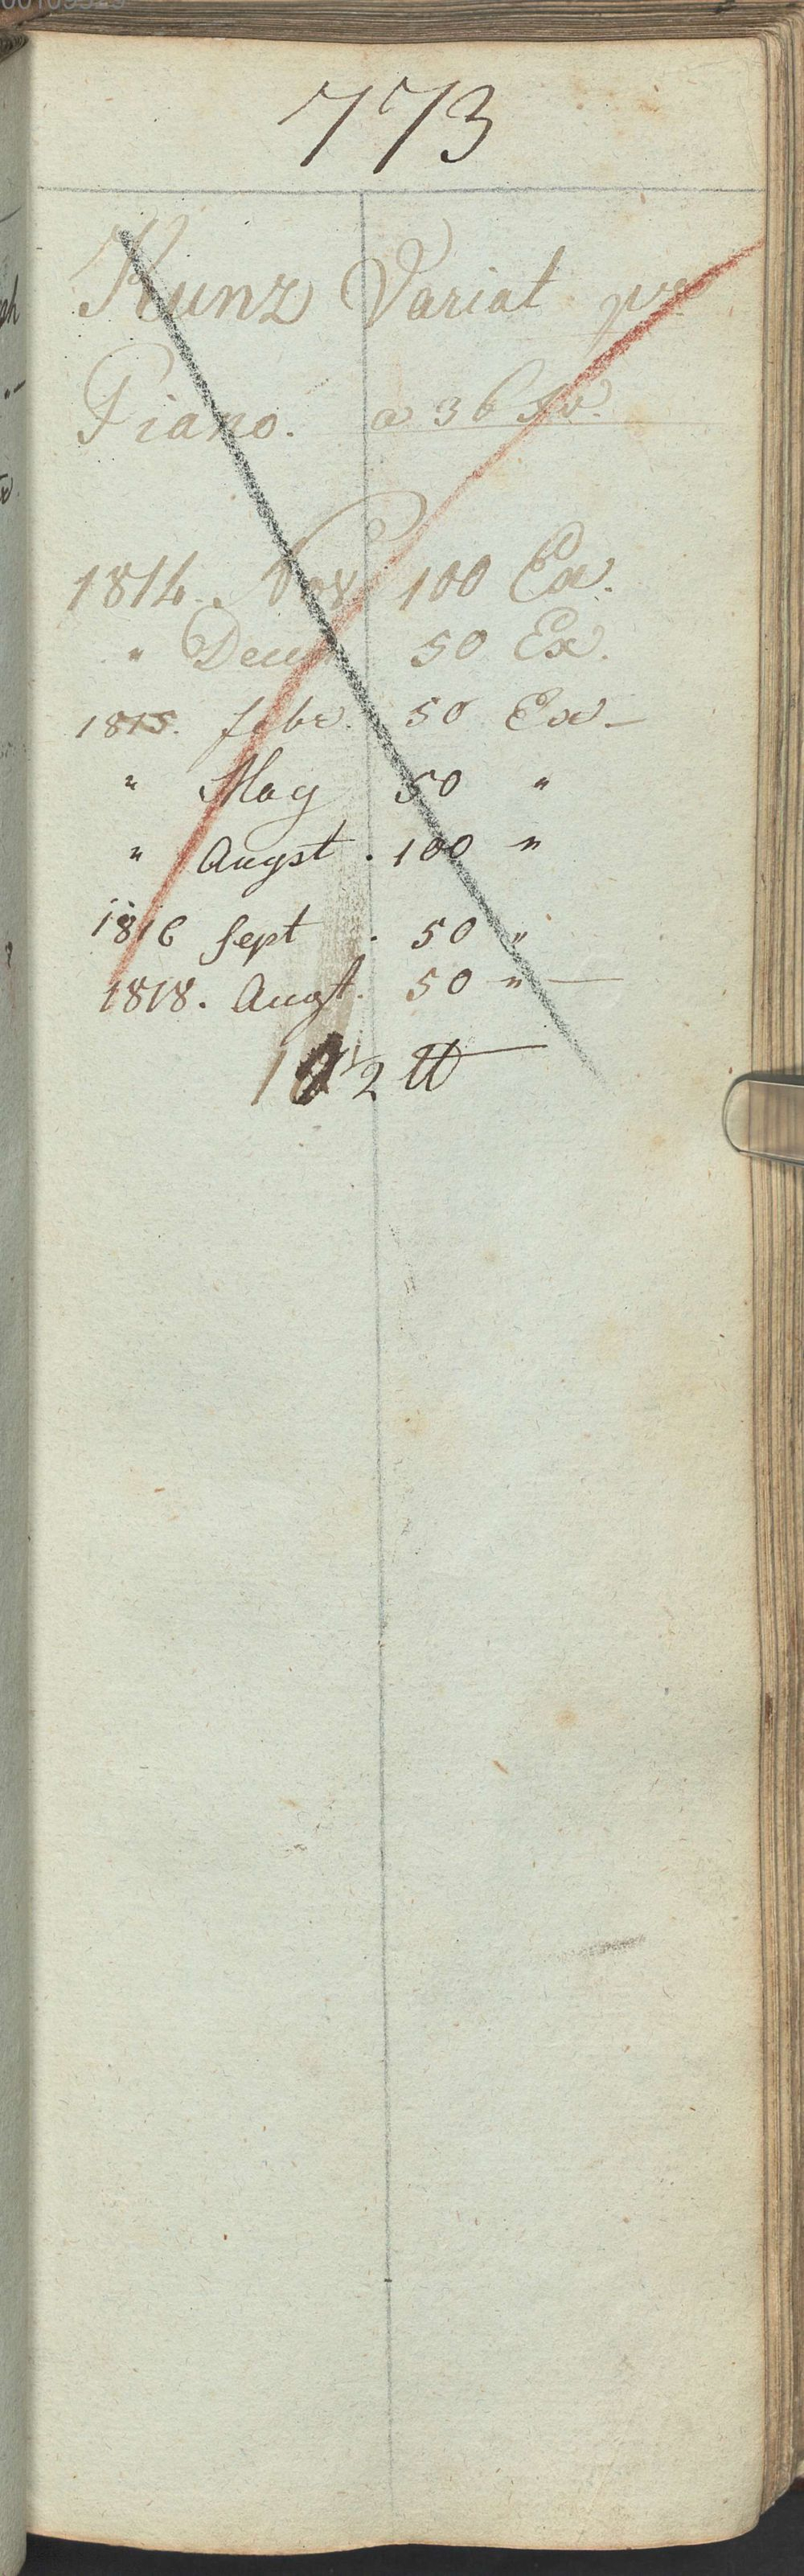 773
Kunz Variat pr
Piano. a 36 Xr.
1814. Nov 100 Ex.
" Decem 50 Ex.
1815. febr. 50 Ex —
" May 50 "
" Augst. 100 "
1816 Sept. 50 "
1818. Augt. 50 " —
1/2 tt